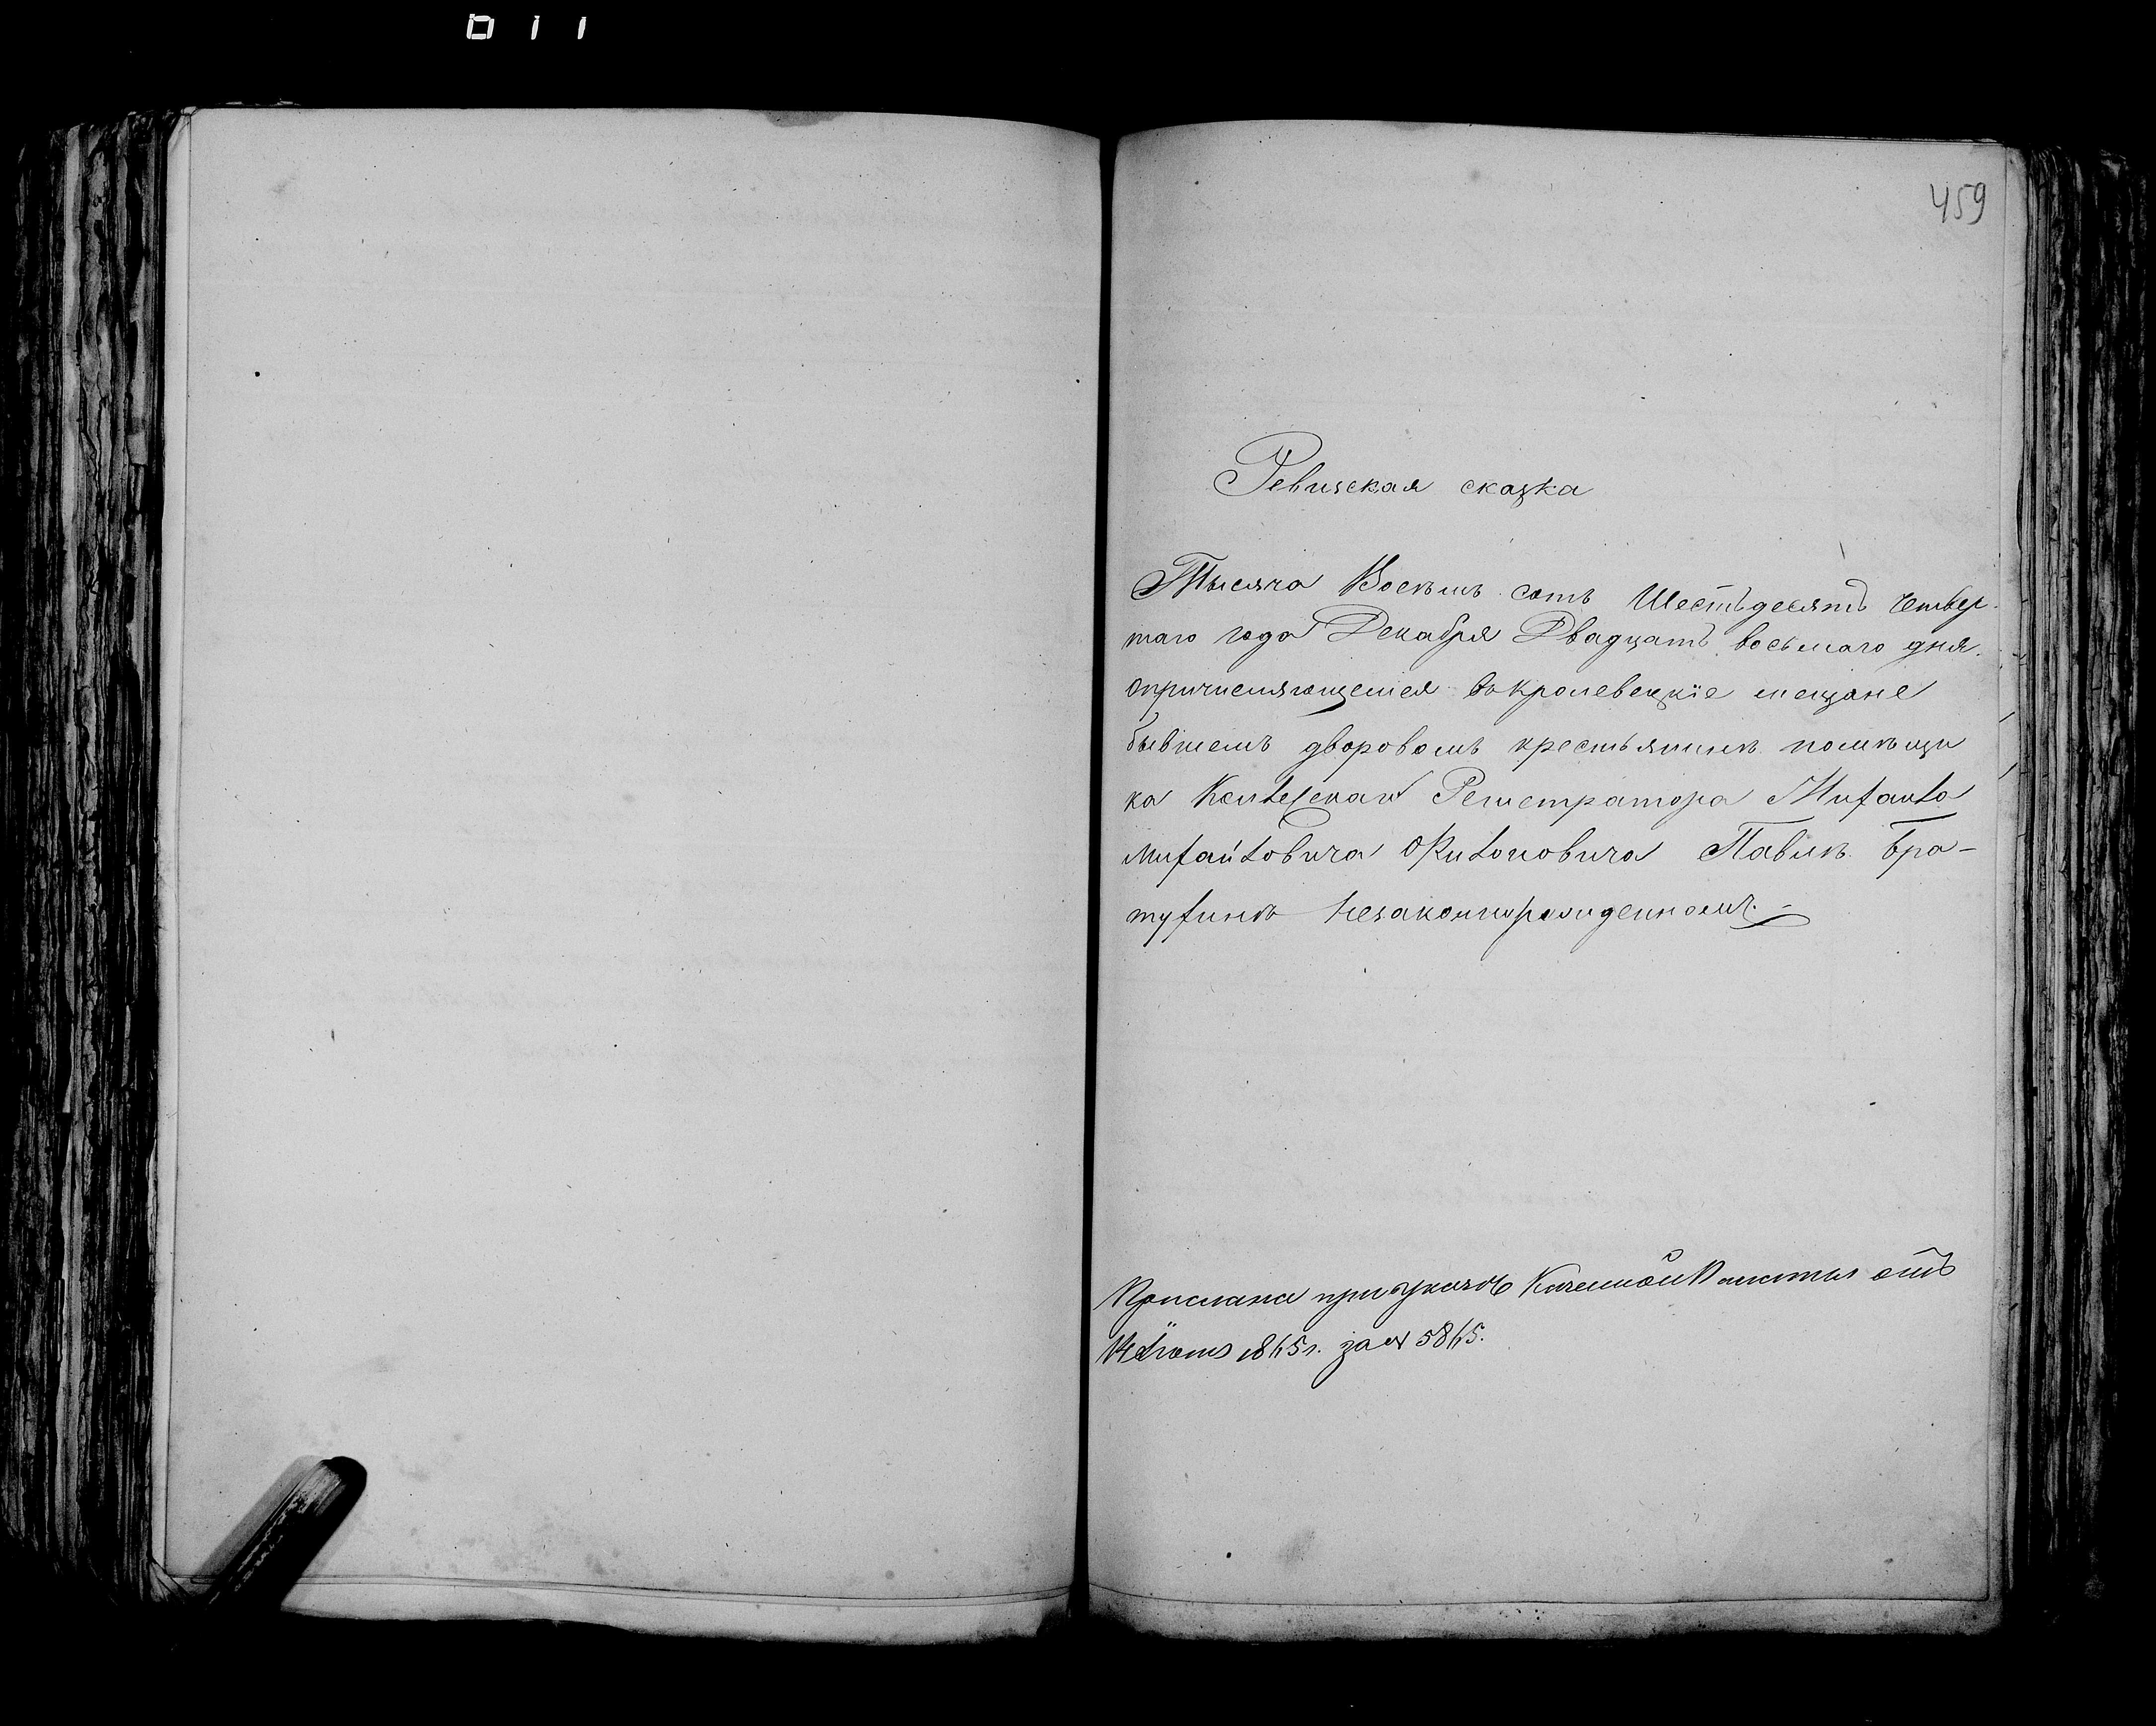 459
Ревизская сказка
Тысяча Восемь сотъ Шестьдесятъ Четвер-
таго года Декабря Двадцать восьмаго дня.
опричисляющемся въ кролевецкіе мещане
бывшемъ дворовомъ крестьянинѣ помѣщи
ка Колежскаго Регистратора Михаила
Михайловича Филоновича Павлѣ Бра-
тухинѣ Незаконнорожденномъ.
Прислана при указѣ Казенной Палаты отъ
1865 г. за № 5865.